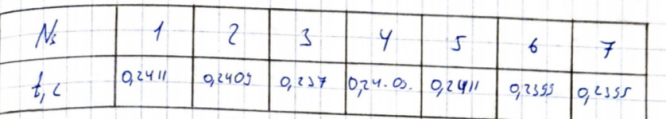 № 1 2 3 4 5 6 7
t, c 0,2411 0,2409 0,237 0,24.09. 0,2411 0,2395 0,2395